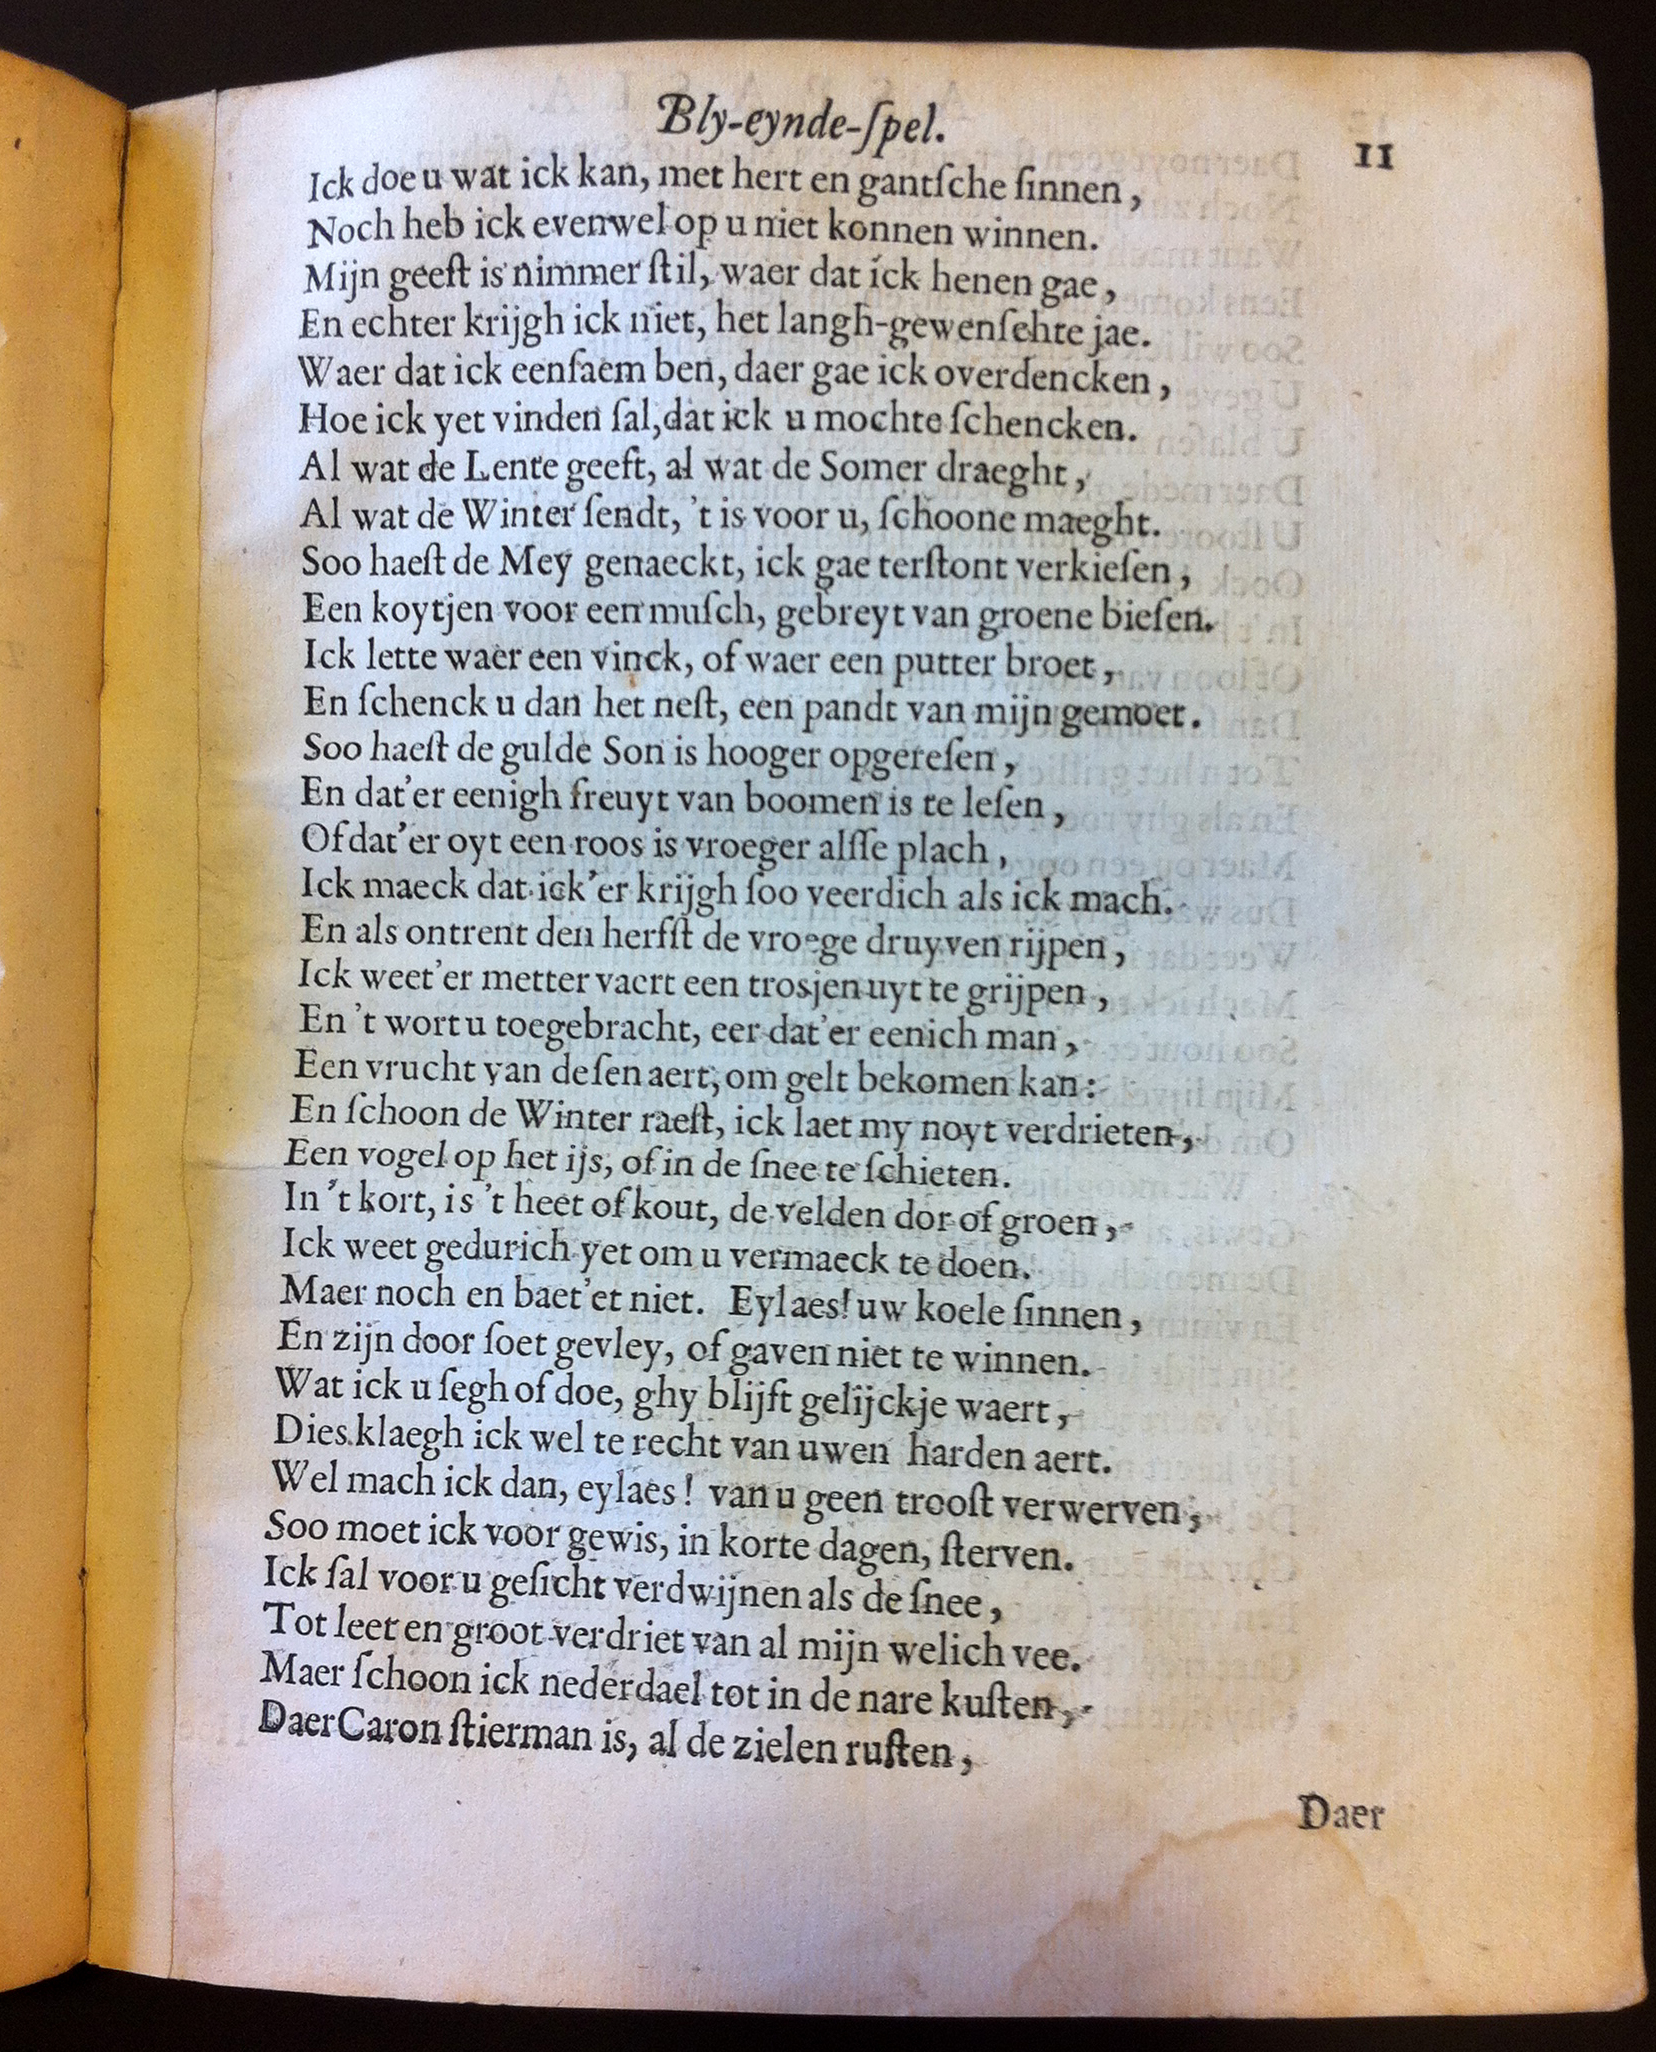 Bly-eynde-ſpel.
11
Ick doe u wat ick kan, met hert en gantſche ſinnen,
Noch heb ick evenwel op u niet konnen winnen.
Mijn geeſt is nimmer ſtil, waer dat ick henen gae,
En echter krijgh ick niet, het langh-gewenſchte jae.
Waer dat ick eenſaem ben, daer gae ick overdencken,
Hoe ick yet vinden ſal, dat ick u mochte ſchencken.
Al wat de Lente geeft, al wat de Somer draeght,
Al wat de Winter ſendt, 't is voor u, ſchoone maeght.
Soo haeſt de Mey genaeckt, ick gae terſtont verkieſen,
Een koytjen voor een muſch, gebreyt van groene bieſen.
Ick lette waer een vinck, of waer een putter broet,
En ſchenck u dan het neſt, een pandt van mijn gemoet.
Soo haeſt de gulde Son is hooger opgereſen,
En dat'er eenigh freuyt van boomen is te leſen,
Of dat'er oyt een roos is vroeger alſſe plach,
Ick maeck dat ick'er krijgh ſoo veerdich als ick mach.
En als ontrent den herfſt de vroege druyven rijpen,
Ick weet'er metter vaert een trosjen uyt te grijpen,
En 't wort u toegebracht, eer dat'er eenich man,
Een vrucht van deſen aert, om gelt bekomen kan:
En ſchoon de Winter raeſt, ick laet my noyt verdrieten,
Een vogel op het ijs, of in de ſnee te ſchieten.
In 't kort, is 't heet of kout, de velden dor of groen,
Ick weet gedurich yet om u vermaeck te doen.
Maer noch en baet'et niet. Eylaes! uw koele ſinnen,
En zijn door ſoet gevley, of gaven niet te winnen.
Wat ick u ſegh of doe, ghy blijft gelijckje waert,
Dies klaegh ick wel te recht van uwen harden aert.
Wel mach ick dan, eylaes! van u geen trooſt verwerven,
Soo moet ick voor gewis, in korte dagen, ſterven.
Ick ſal voor u geſicht verdwijnen als de ſnee,
Tot leet en groot verdriet van al mijn welich vee.
Maer ſchoon ick nederdael tot in de nare kuſten,
Daer Caron ſtierman is, al de zielen ruſten,
Daer